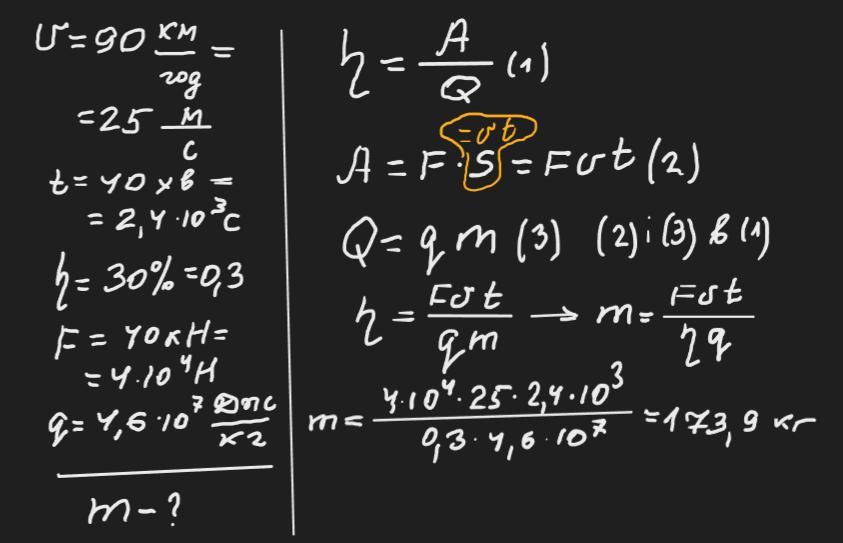 υ = 90 км/год =
= 25 м/с
t = 40 хв =
= 2,4·10³ с
η = 30% = 0,3
F = 40 кН =
= 4·10⁴ Н
q = 4,6·10⁷ Дж/кг
m - ?
η = A/Q (1)
= υt
A = F·S = Fυt (2)
Q = qm (3) (2) і (3) в (1)
η = Fυt/qm → m = Fυt/ηq
m = 4·10⁴·25·2,4·10³/0,3·4,6·10⁷ = 173,9 кг